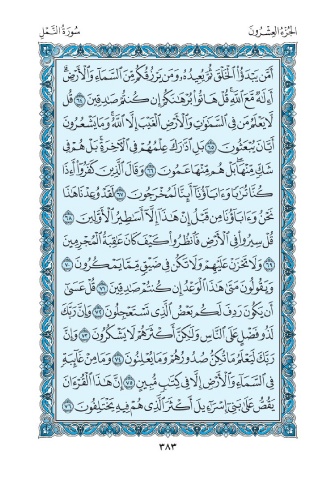 الجزء العشرون
سورة النمل
أَمَّن يَبْدَؤُا۟ ٱلْخَلْقَ ثُمَّ يُعِيدُهُۥ وَمَن يَرْزُقُكُم مِّنَ ٱلسَّمَآءِ وَٱلْأَرْضِ
أَءِلَٰهٌ مَّعَ ٱللَّهِ قُلْ هَاتُوا۟ بُرْهَٰنَكُمْ إِن كُنتُمْ صَٰدِقِينَ ٦٤ قُل
لَّا يَعْلَمُ مَن فِى ٱلسَّمَٰوَٰتِ وَٱلْأَرْضِ ٱلْغَيْبَ إِلَّا ٱللَّهُ وَمَا يَشْعُرُونَ
أَيَّانَ يُبْعَثُونَ ٦٥ بَلِ ٱدَّٰرَكَ عِلْمُهُمْ فِى ٱلْءَاخِرَةِ بَلْ هُمْ فِى
شَكٍّ مِّنْهَا بَلْ هُم مِّنْهَا عَمُونَ ٦٦ وَقَالَ ٱلَّذِينَ كَفَرُوٓا۟ أَءِذَا
كُنَّا تُرَٰبًا وَءَابَآؤُنَآ أَئِنَّا لَمُخْرَجُونَ ٦٧ لَقَدْ وُعِدْنَا هَٰذَا
نَحْنُ وَءَابَآؤُنَا مِن قَبْلُ إِنْ هَٰذَآ إِلَّآ أَسَٰطِيرُ ٱلْأَوَّلِينَ ٦٨
قُلْ سِيرُوا۟ فِى ٱلْأَرْضِ فَٱنظُرُوا۟ كَيْفَ كَانَ عَٰقِبَةُ ٱلْمُجْرِمِينَ
٦٩ وَلَا تَحْزَنْ عَلَيْهِمْ وَلَا تَكُن فِى ضَيْقٍ مِّمَّا يَمْكُرُونَ ٧٠
وَيَقُولُونَ مَتَىٰ هَٰذَا ٱلْوَعْدُ إِن كُنتُمْ صَٰدِقِينَ ٧١ قُلْ عَسَىٰٓ
أَن يَكُونَ رَدِفَ لَكُم بَعْضُ ٱلَّذِى تَسْتَعْجِلُونَ ٧٢ وَإِنَّ رَبَّكَ
لَذُو فَضْلٍ عَلَى ٱلنَّاسِ وَلَٰكِنَّ أَكْثَرَهُمْ لَا يَشْكُرُونَ ٧٣ وَإِنَّ
رَبَّكَ لَيَعْلَمُ مَا تُكِنُّ صُدُورُهُمْ وَمَا يُعْلِنُونَ ٧٤ وَمَا مِنْ غَآئِبَةٍ
فِى ٱلسَّمَآءِ وَٱلْأَرْضِ إِلَّا فِى كِتَٰبٍ مُّبِينٍ ٧٥ إِنَّ هَٰذَا ٱلْقُرْءَانَ
يَقُصُّ عَلَىٰ بَنِىٓ إِسْرَٰٓءِيلَ أَكْثَرَ ٱلَّذِى هُمْ فِيهِ يَخْتَلِفُونَ ٧٦
٣٨٣